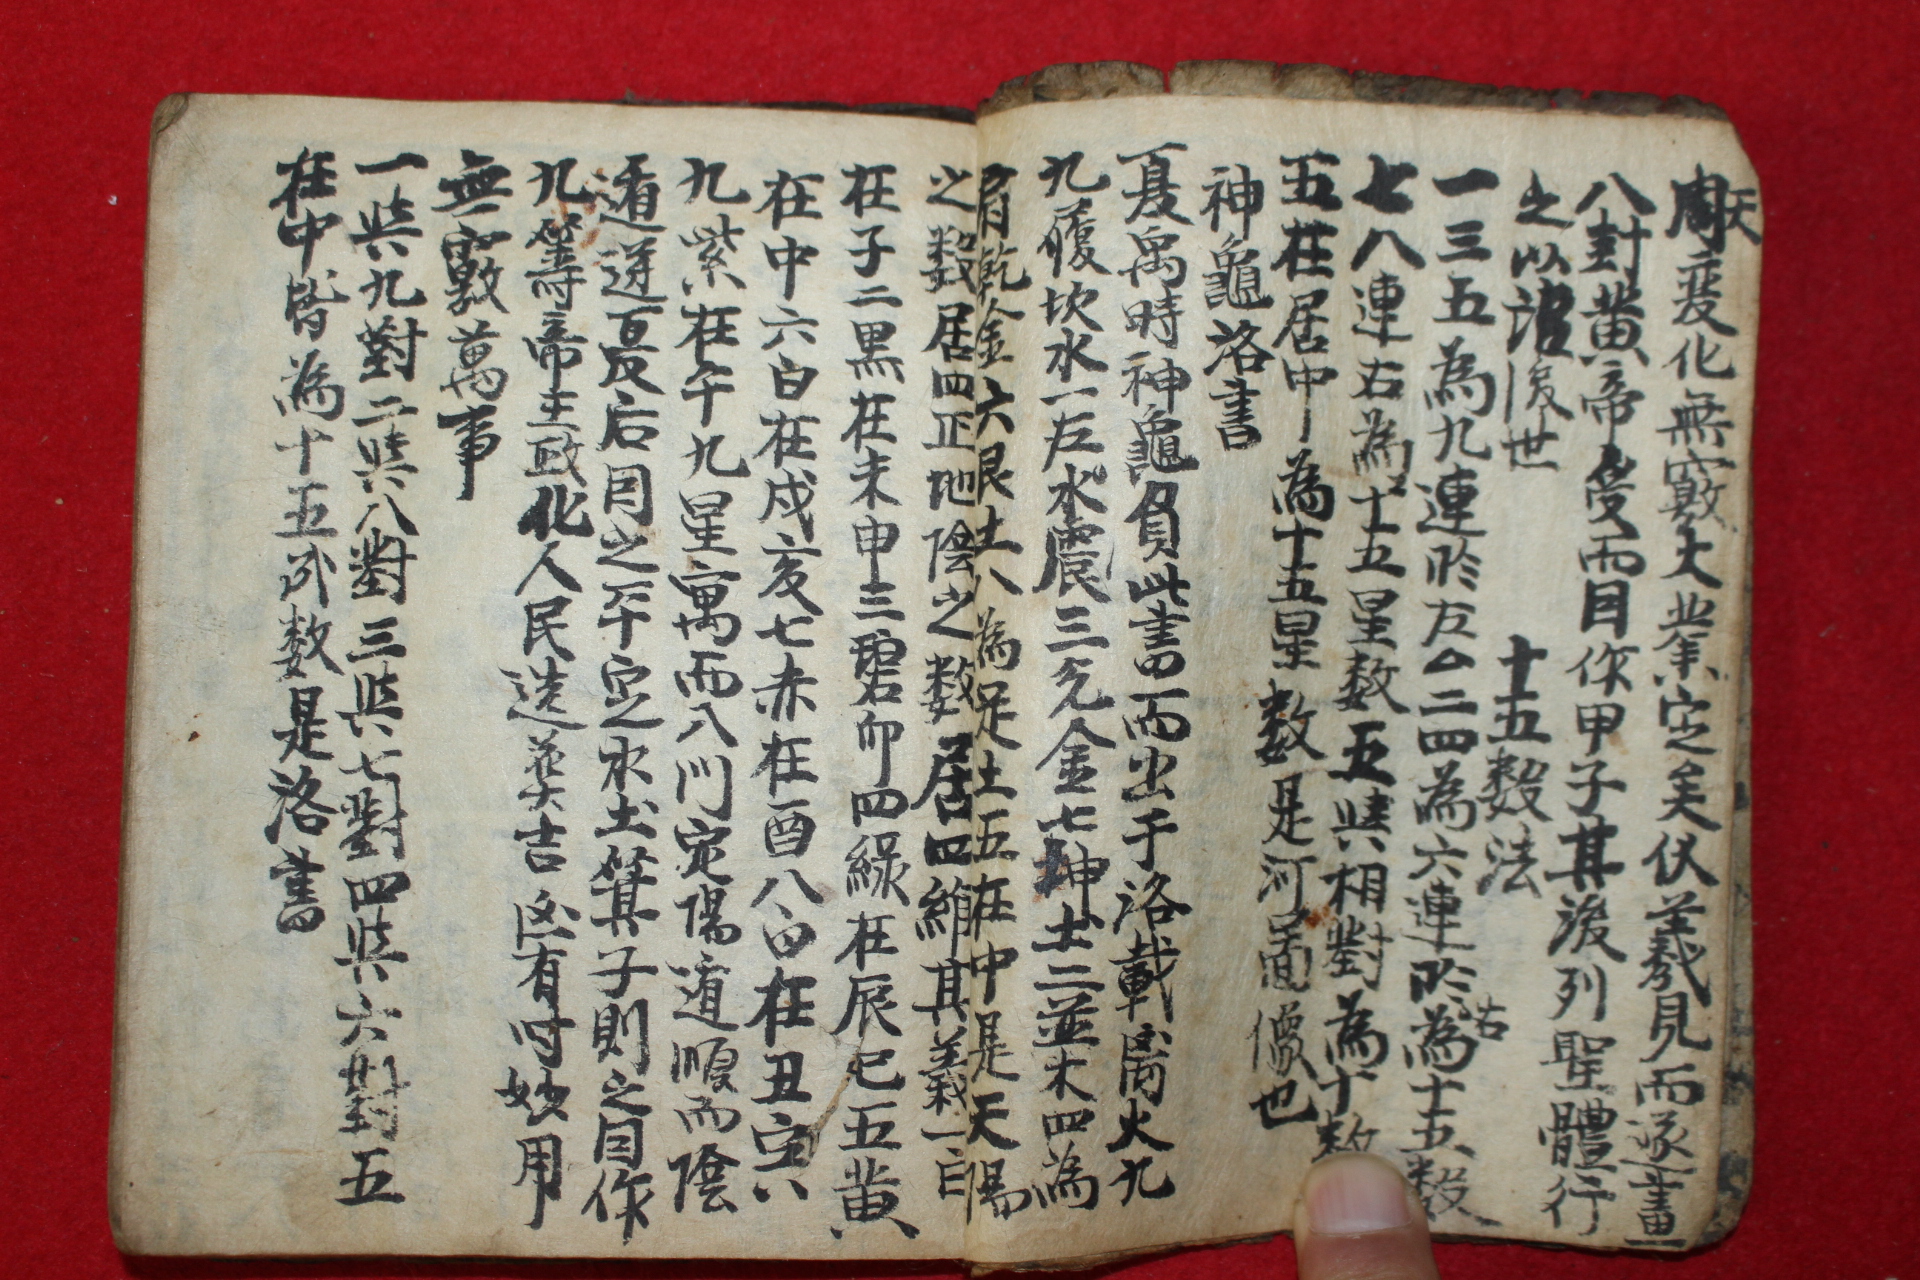 周天變化無窮大業定矣伏羲見而逐畫
八封黃帝受而目作甲子其後列聖體行
之以詔後世
十五數法
一三五為九連於左亽二四為六連於右為十五數
七八連右為十五星數五與相對為十數
五在居中為十五星數是河圖像也
神龜洛書
夏禹時神龜負此書而出于洛載离火九
九履坎水一左水震三兌金七坤土二並木四為
肩乾金六艮土八為足土五在中是天陽
之數居四正地陰之數居四維其義一白
在子二黑在未申三碧卯四綠在辰巳五黃
在中六白在戌亥七赤在酉八白在丑寅
九紫在午九星寓而八門定陽遁順而陰
遁逆夏后目之平定水土箕子則之目作
九籌帝王政化人民造葬吉凶有時妙用
無窮萬事
一與九對二與八對三與七對四與六對五
在中皆為十五數是洛書